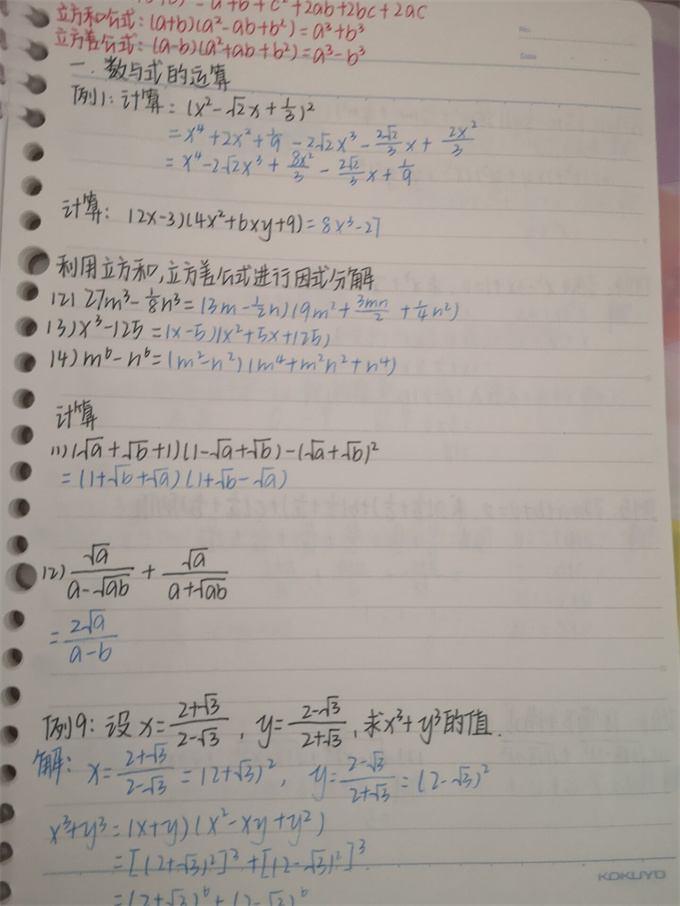 = a²+b²+c²+2ab+2bc+2ac
立方和公式: (a+b)(a²-ab+b²)=a³+b³
立方差公式: (a-b)(a²+ab+b²)=a³-b³
一. 数与式的运算
例1: 计算: (x²-√2x+1/3)²
=x⁴+2x²+1/9-2√2x³-2√2/3x+2x²/3
=x⁴-2√2x³+8x²/3-2√2/3x+1/9
计算: (2x-3)(4x²+6xy+9)=8x³-27
利用立方和,立方差公式进行因式分解
(2) 27m³-1/8n³=(3m-1/2n)(9m²+3mn/2+1/4n²)
(3) x³-125=(x-5)(x²+5x+125)
(4) m⁶-n⁶=(m²-n²)(m⁴+m²n²+n⁴)
计算
(1) (√a+√b+1)(1-√a+√b)-(√a+√b)²
=(1+√b+√a)(1+√b-√a)
(2) √a/(a-√ab)+√a/(a+√ab)
=2√a/(a-b)
例9: 设x=(2+√3)/(2-√3), y=(2-√3)/(2+√3), 求x³+y³的值.
解: x=(2+√3)/(2-√3)=(2+√3)², y=(2-√3)/(2+√3)=(2-√3)²
x³+y³=(x+y)(x²-xy+y²)
=[(2+√3)²]³+[(2-√3)²]³
=(2+√3)⁶+(2-√3)⁶
No.
Date
KOKUYO